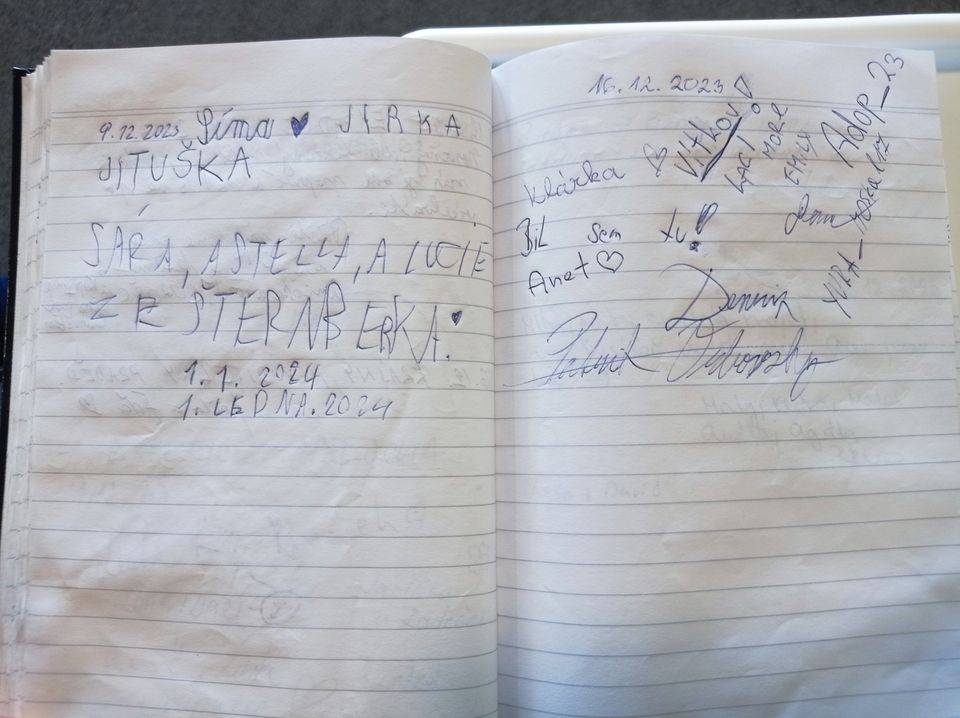 9.12.2023 Síma ♥ JIRKA
JITUŠKA
SÁRA, A STELLA, A LUCIE
ZE ŠTERNBERKA.
1.1. 2024
1. LEDNA. 2024
16.12.2023
Klárka ♡
Vítkov
LACI
MORE
EMILY
Adop_23
Bil sem tu!
Anet ♡
Dennis
YURA_
Patrik